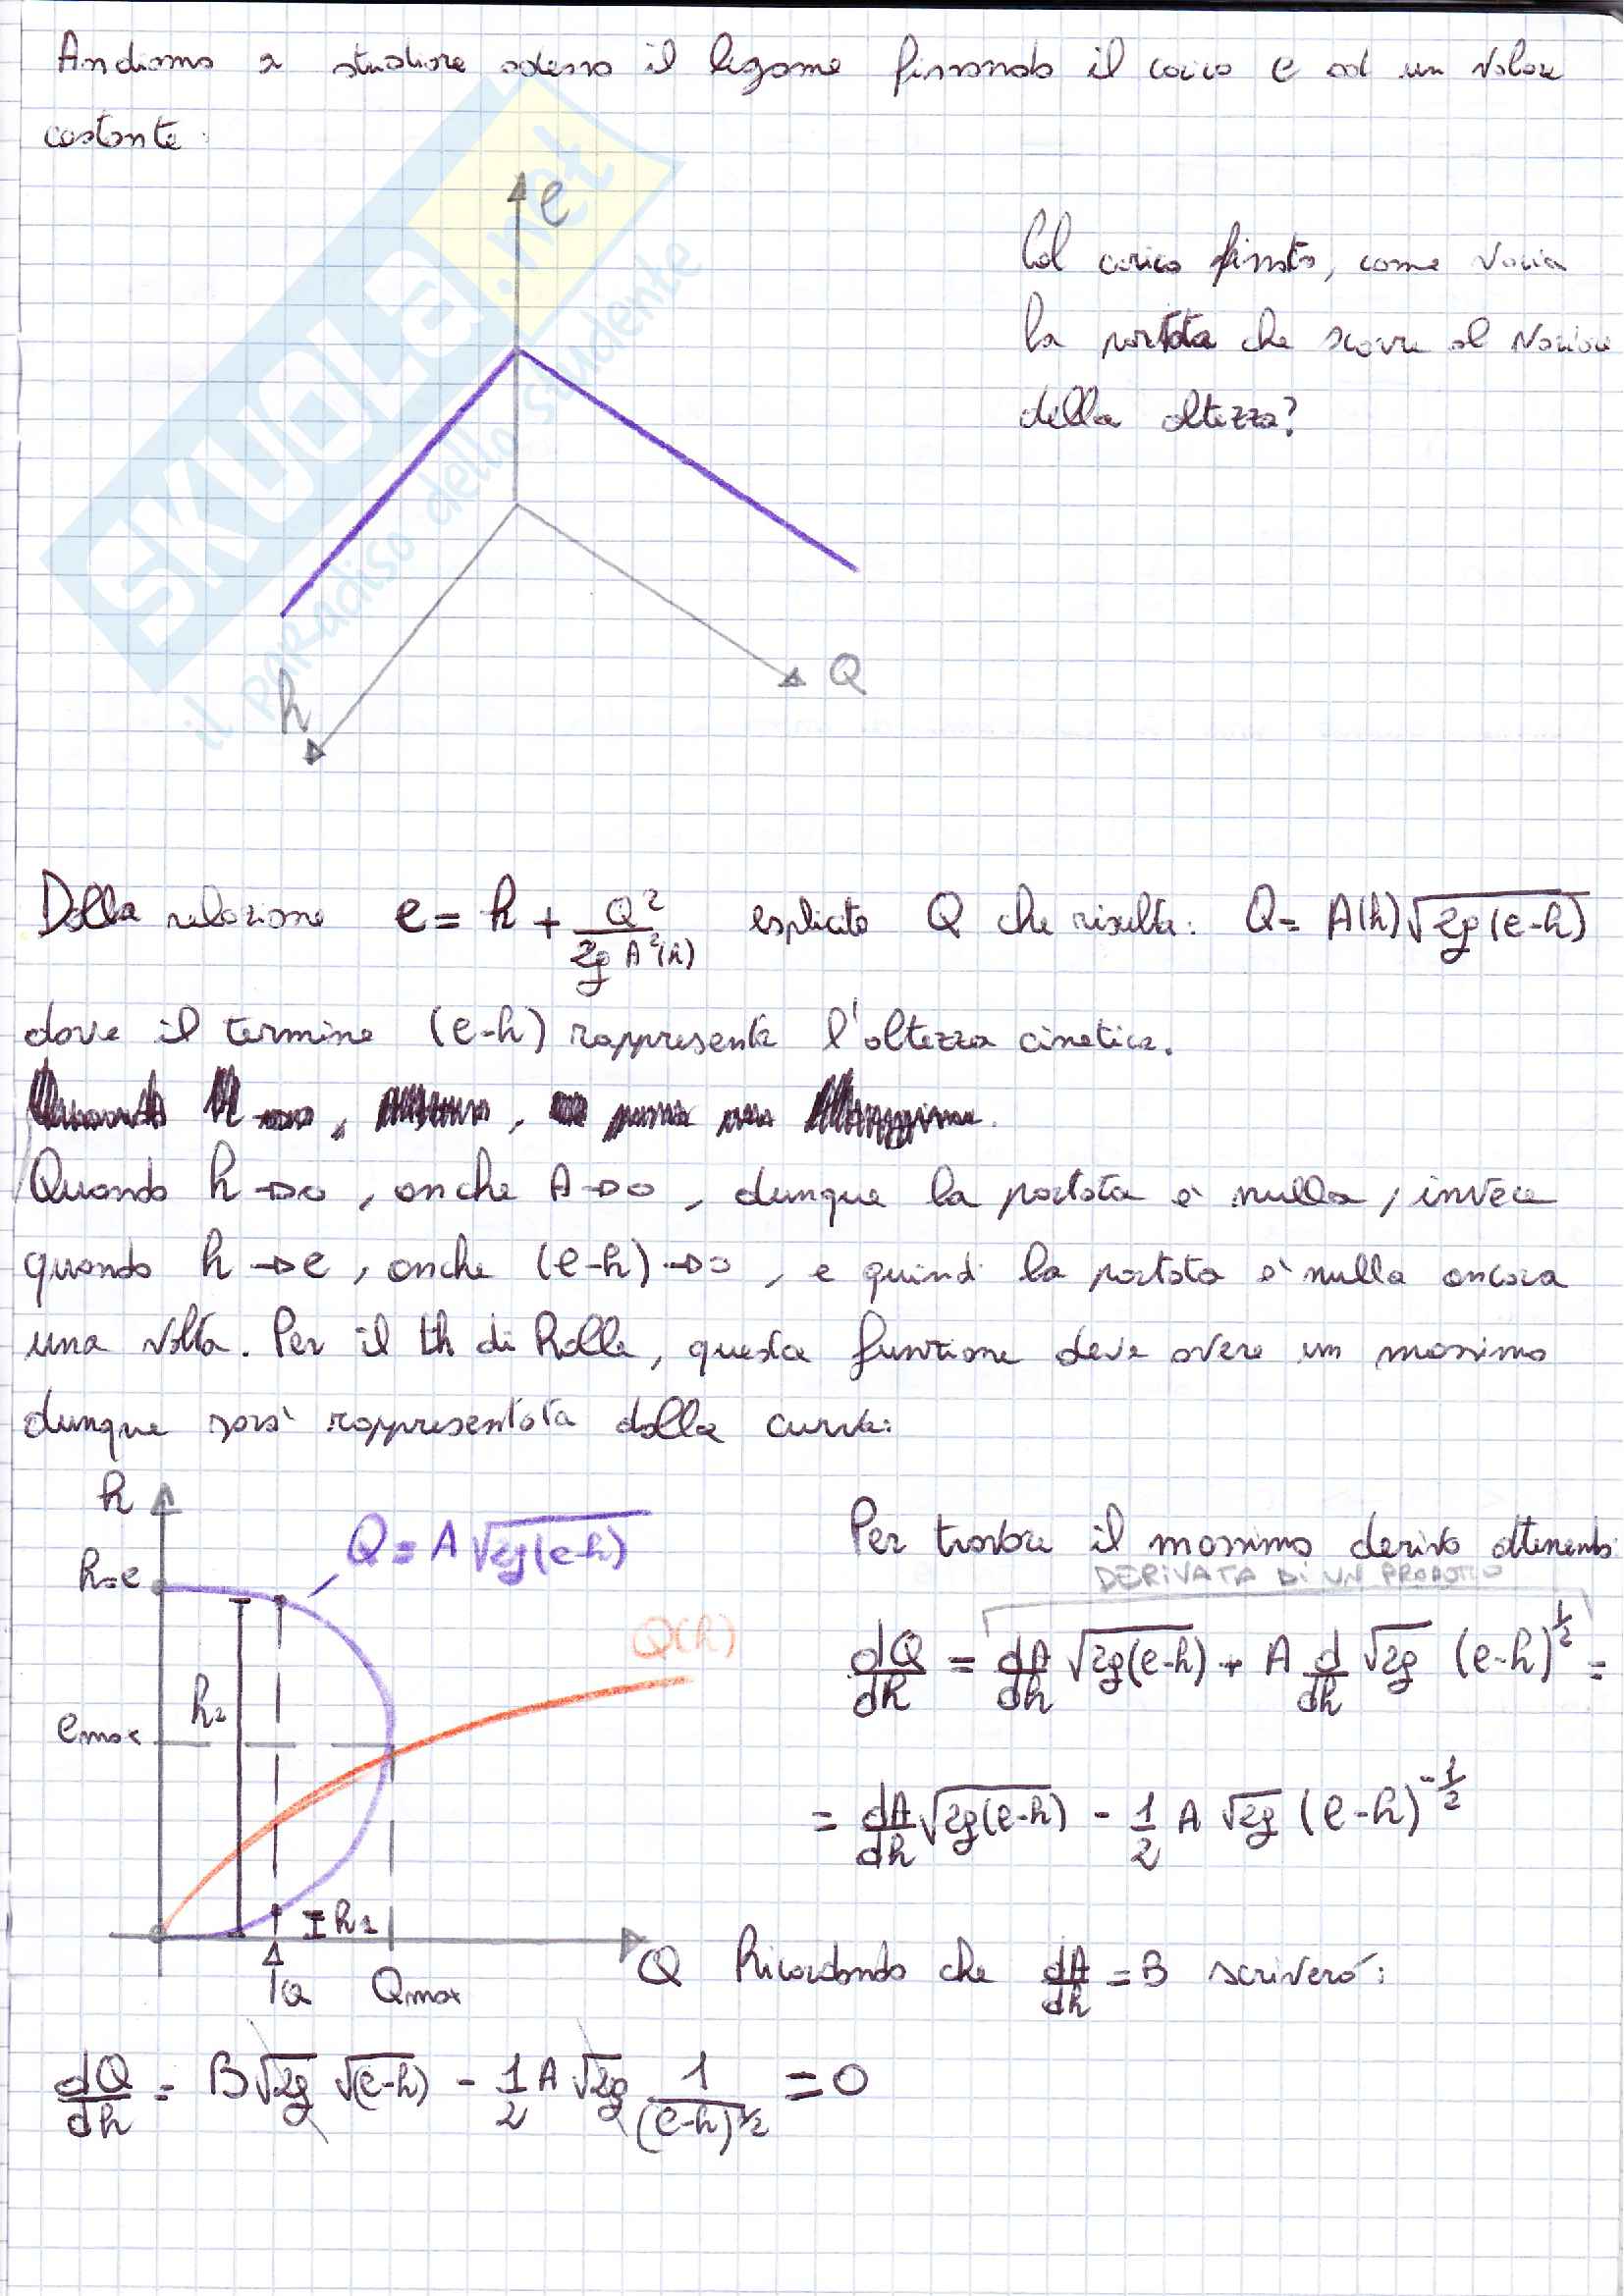 Andiamo a studiare adesso il legame fissando il carico e ad un valore
costante:
e
Col carico fissato, come varia
la portata che scorre al variare
della altezza?
h
Q
SKUOLA.net
il paradiso dello studente
Dalla relazione e = h + Q²/(2g A²(h)) esplicito Q che risulta: Q = A(h)√(2g(e-h))
dove il termine (e-h) rappresenta l'altezza cinetica.
Quando h→0, anche A→0, dunque la portata è nulla, invece
quando h→e, anche (e-h)→0, e quindi la portata è nulla ancora
una volta. Per il th di Rolle, questa funzione deve avere un massimo
dunque sarà rappresentata dalla curva:
h
Q = A√(2g(e-h))
h=e
Q(h)
h2
emax
h1
Q
Q
Qmax
Per trovare il massimo derivo ottenendo:
DERIVATA DI UN PRODOTTO
dQ/dh = dA/dh √(2g(e-h)) + A d/dh √2g (e-h)^½ =
= dA/dh √(2g(e-h)) - 1/2 A √2g (e-h)^-½
Ricordando che dA/dh = B scriverò:
dQ/dh = B√2g √(e-h) - 1/2 A √2g 1/(e-h)^½ = 0